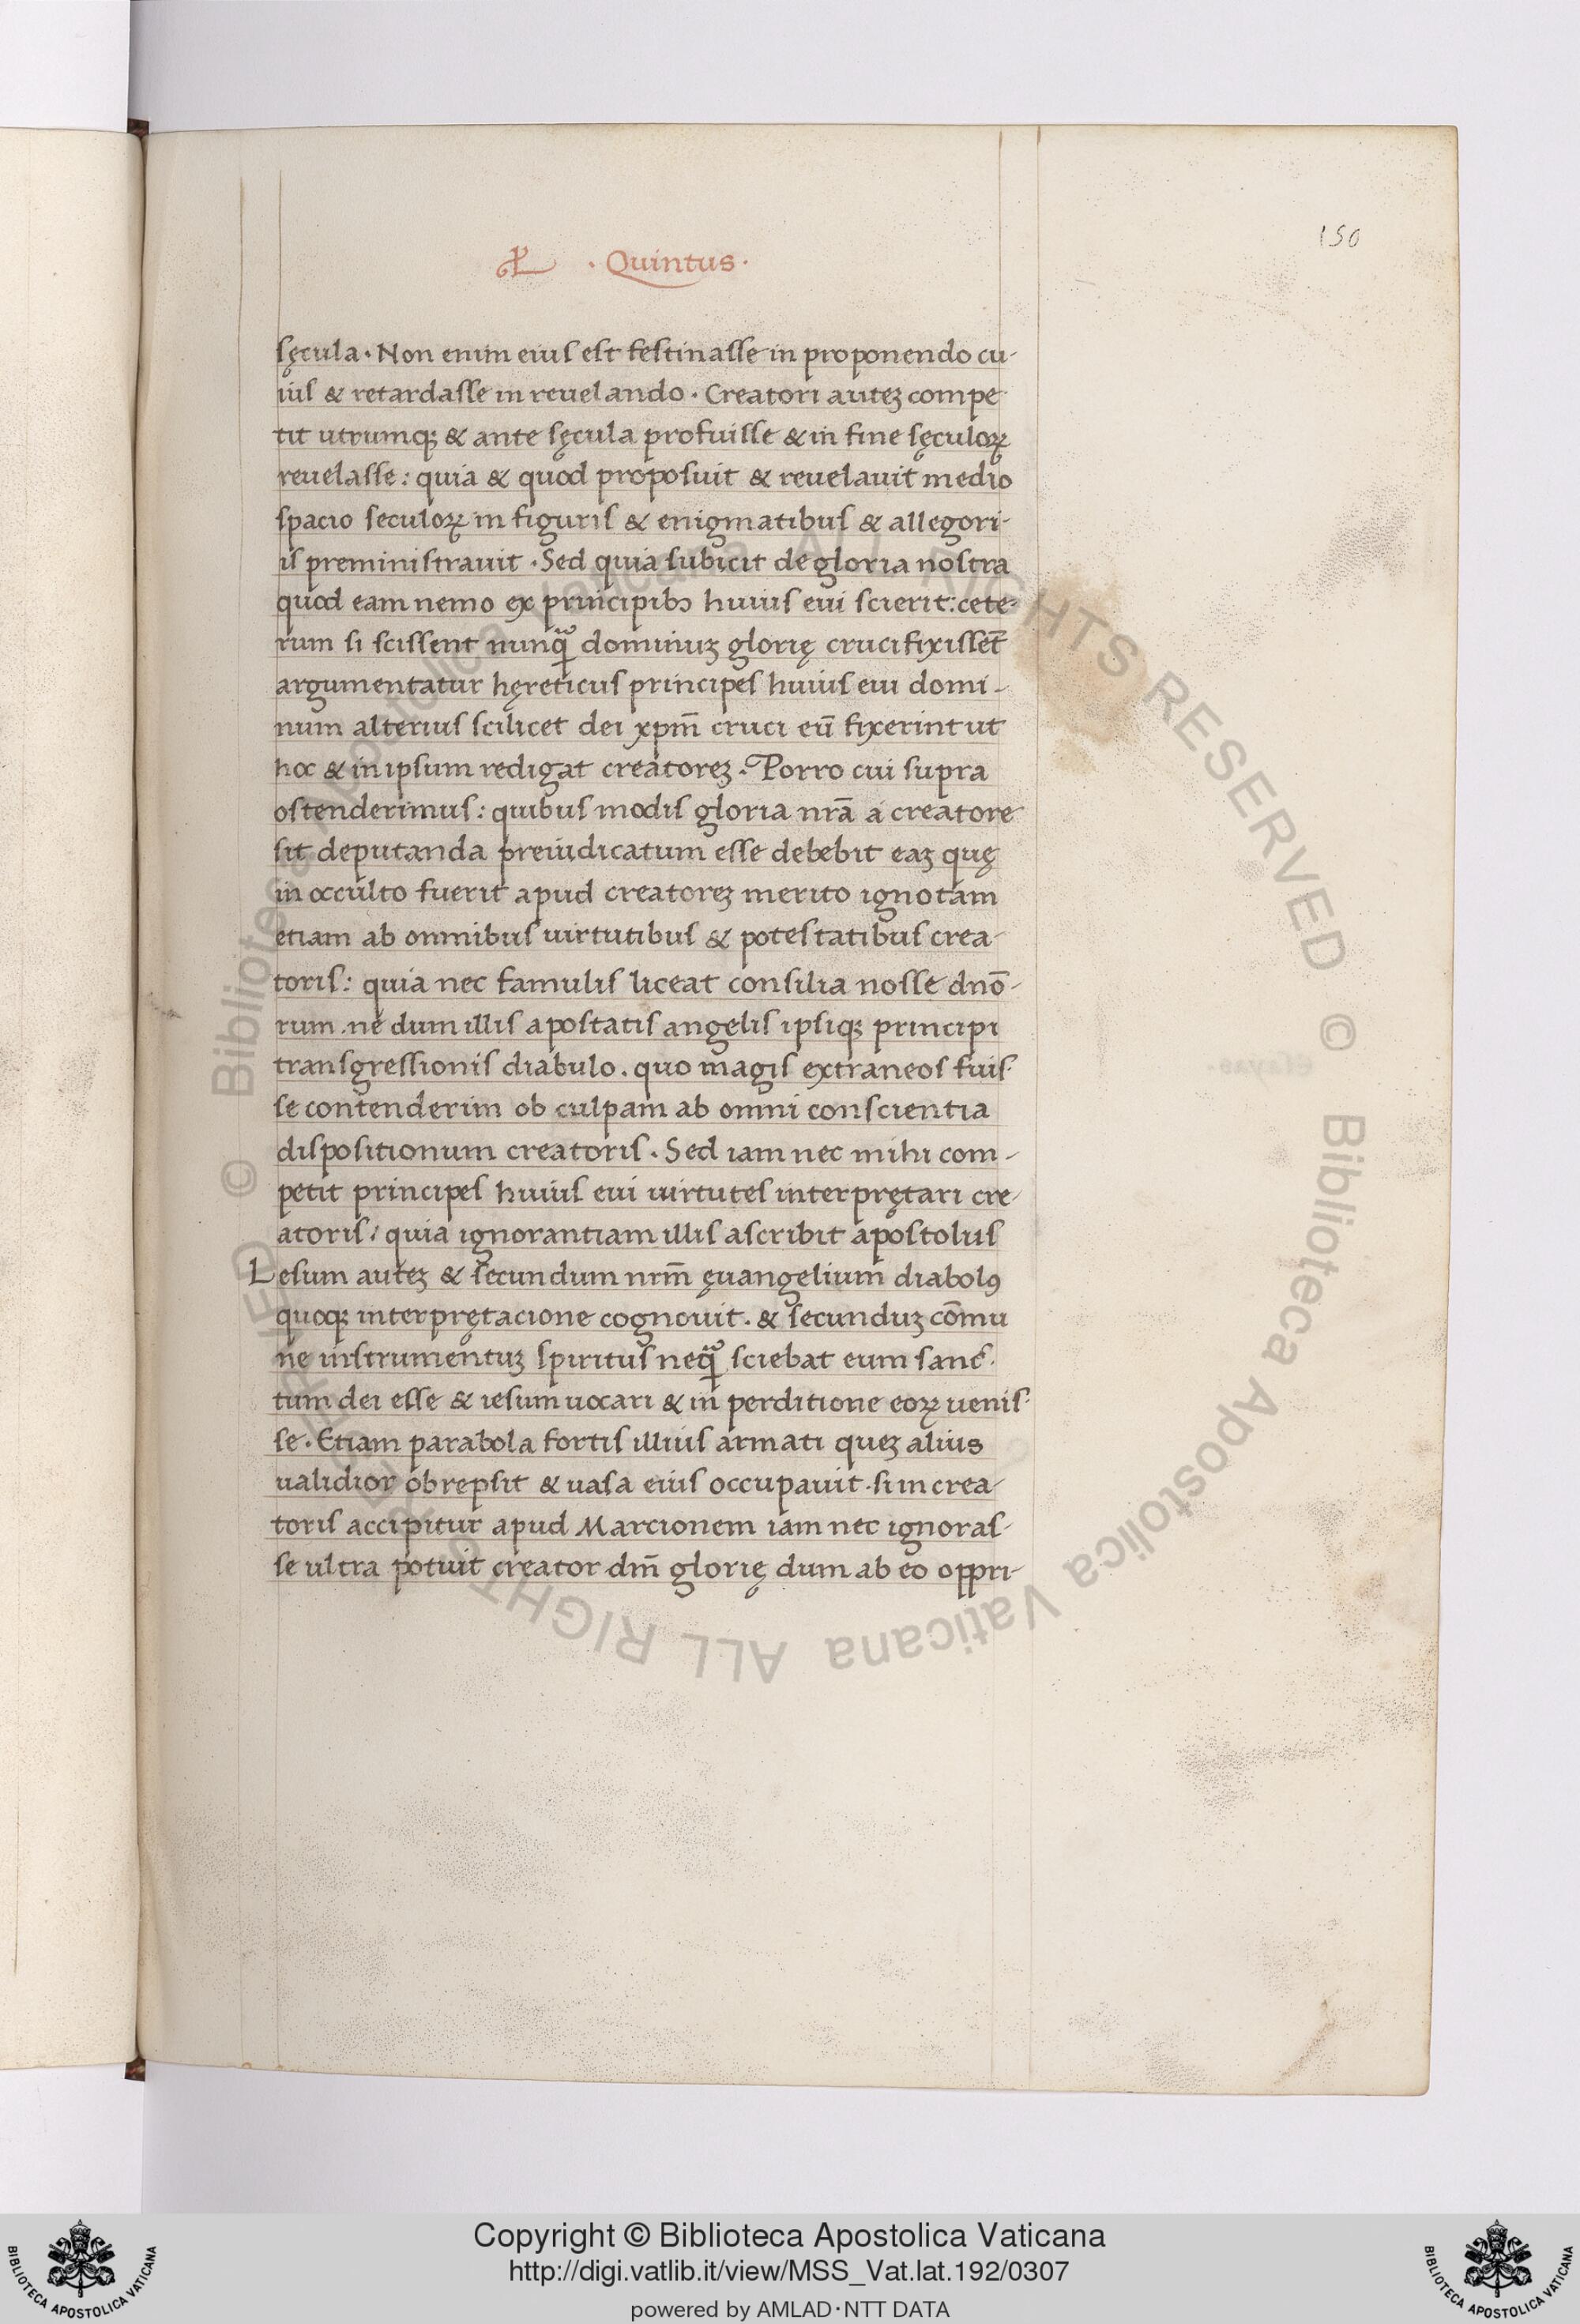 150
· Quintus ·
sęcula · Non enim eius est festinasse in proponendo cu-
ius & retardasse in reuelando · Creatori auteꝫ compe-
tit utrumqꝫ & ante sęcula profuisse & in fine sęculoꝝ
reuelasse : quia & quod proposuit & reuelauit medio
spacio seculoꝝ in figuris & enigmatibus & allegori-
is preministrauit · Sed quia subicit de gloria nostra
quod eam nemo ex principibꝰ huius eui scierit : cete-
rum si scissent nunꝙͣ dominuꝫ glorię crucifixisset̄
argumentatur hęreticus principes huius eui domi-
num alterius scilicet dei xp̄m̄ cruci eū fixerint ut
hoc & in ipsum redigat creatoreꝫ · Porro cui supra
ostenderimus : quibus modis gloria nrā a creatore
sit deputanda preiudicatum esse debebit eaꝫ quę
in occulto fuerit apud creatoreꝫ merito ignotam
etiam ab omnibus uirtutibus & potestatibus crea-
toris : quia nec famulis liceat consilia nosse dnō-
rum . ne dum illis apostatis angelis ipsiqꝫ principi
transgressionis diabulo . quo magis extraneos fuis-
se contenderim ob culpam ab omni conscientia
dispositionum creatoris · Sed iam nec mihi com-
petit principes huius eui uirtutes interprętari cre-
atoris / quia ignorantiam illis ascribit apostolus
Lesum auteꝫ & secundum nrm̄ ęuangelium diabolꝰ
quoqꝫ interprętacione cognouit . & secunduꝫ cōmu
ne instrumentuꝫ spiritus neꝙͣ sciebat eum sanc-
tum dei esse & iesum uocari & in perditione eoꝝ uenis-
se · Etiam parabola fortis illius armati queꝫ alius
ualidior obrepsit & uasa eius occupauit · si in crea-
toris accipitur apud Marcionem iam nec ignoras-
se ultra potuit creator dm̄ glorię dum ab eo oppri-
© Biblioteca Apostolica Vaticana ALL RIGHTS RESERVED © Biblioteca Apostolica Vaticana ALL RIGHTS RESERVED
BIBLIOTECA APOSTOLICA VATICANA
Copyright © Biblioteca Apostolica Vaticana
http://digi.vatlib.it/view/MSS_Vat.lat.192/0307
powered by AMLAD·NTT DATA
BIBLIOTECA APOSTOLICA VATICANA